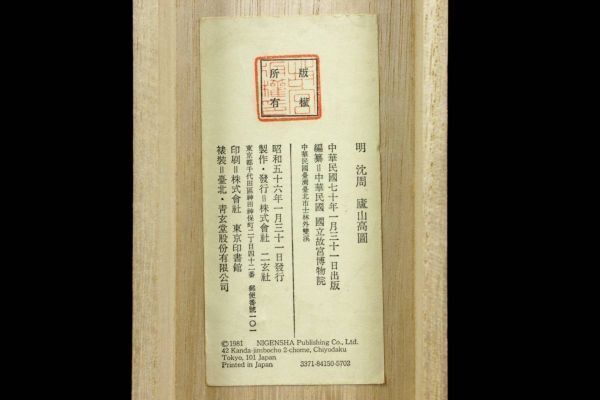 版權
所有
明 沈周 廬山高圖
中華民國七十年一月三十一日出版
編纂=中華民國 國立故宮博物院
中華民國臺灣臺北市士林外雙溪
昭和五十六年一月三十一日發行
製作・發行=株式會社 二玄社
東京都千代田區神田神保町二丁目四十二番 郵便番號一〇一
印刷=株式會社 東京印書館
裱裝=臺北・青玄堂股份有限公司
©1981 NIGENSHA Publishing Co., Ltd.
42 Kanda-jimbocho 2-chome, Chiyodaku
Tokyo, 101 Japan
Printed in Japan 3371-84150-5703